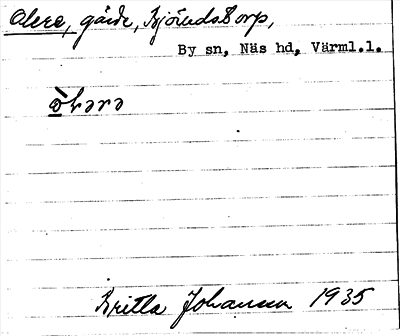 Olera, gärde, Björndstorp,
By sn, Näs hd, Värml.l.
Britta Johansson 1935